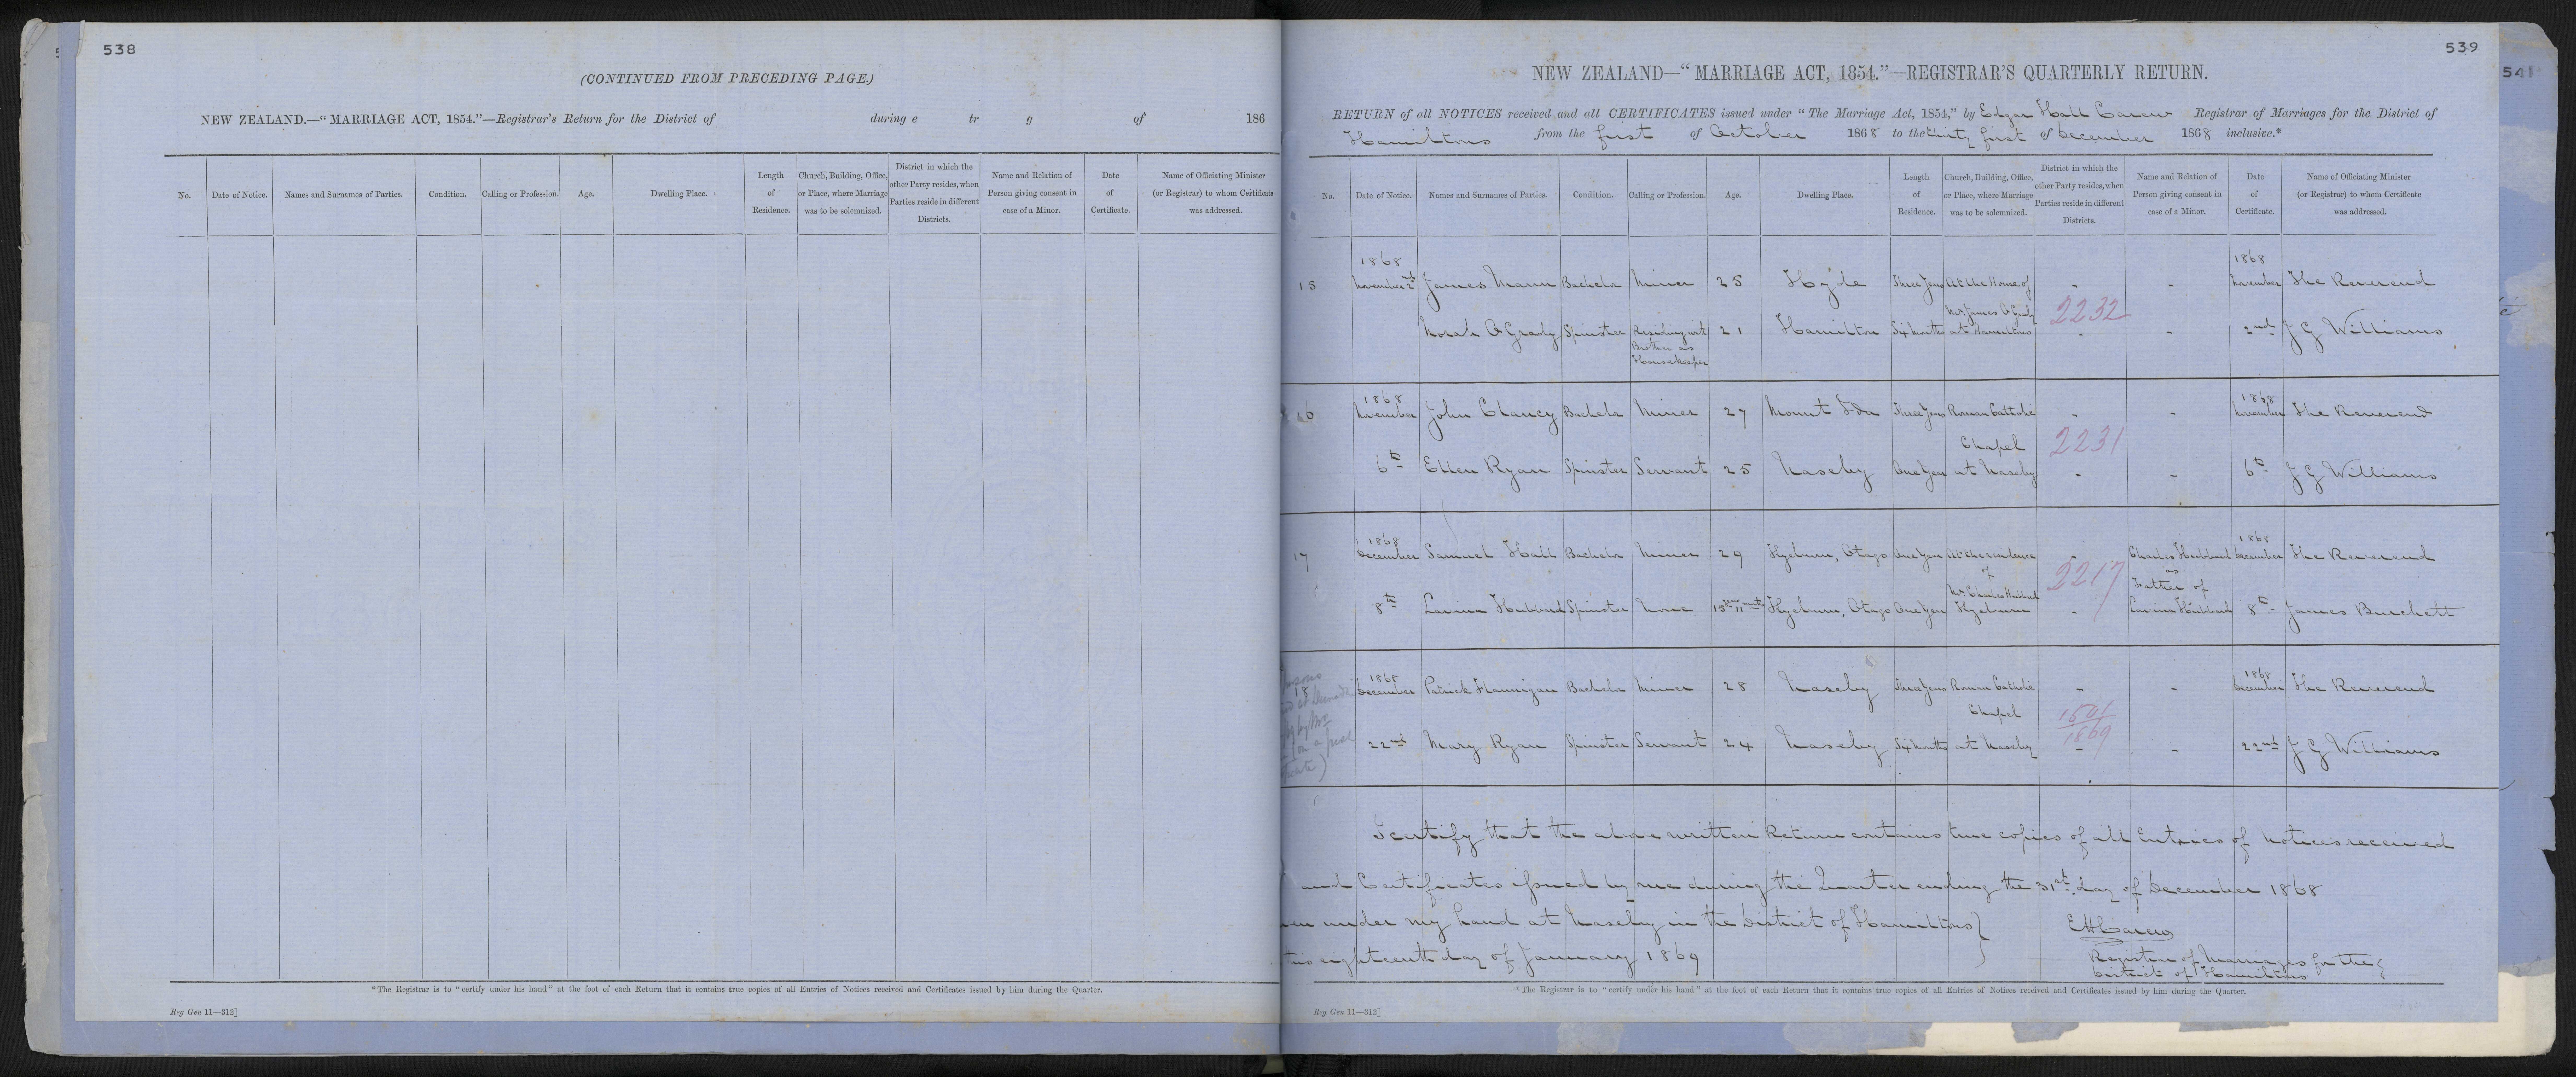 538
(CONTINUED FROM PRECEDING PAGE.)
NEW ZEALAND.—“MARRIAGE ACT, 1854.”—Registrar's Return for the District of during e tr g of 186
No.
Date of Notice.
Names and Surnames of Parties.
Condition.
Calling or Profession.
Age.
Dwelling Place.
Length
of
Residence.
Church, Building, Office,
or Place, where Marriage
was to be solemnized.
District in which the
other Party resides, when
Parties reside in different
Districts.
Name and Relation of
Person giving consent in
case of a Minor.
Date
of
Certificate.
Name of Officiating Minister
(or Registrar) to whom Certificate
was addressed.
*The Registrar is to “certify under his hand” at the foot of each Return that it contains true copies of all Entries of Notices received and Certificates issued by him during the Quarter.
Reg Gen 11—312]
539
541
NEW ZEALAND—“MARRIAGE ACT, 1854.”—REGISTRAR'S QUARTERLY RETURN.
RETURN of all NOTICES received and all CERTIFICATES issued under “The Marriage Act, 1854,” by Edgar Hall Carew Registrar of Marriages for the District of
Hamiltons from the first of October 1868 to the thirty first of December 1868 inclusive.*
No.
Date of Notice.
Names and Surnames of Parties.
Condition.
Calling or Profession.
Age.
Dwelling Place.
Length
of
Residence.
Church, Building, Office,
or Place, where Marriage
was to be solemnized.
District in which the
other Party resides, when
Parties reside in different
Districts.
Name and Relation of
Person giving consent in
case of a Minor.
Date
of
Certificate.
Name of Officiating Minister
(or Registrar) to whom Certificate
was addressed.
1868 1868
15 November 2nd James Mann Bachelor Miner 25 Hyde Three Years At the House of - - November The Reverend
Mr James O Grady 2232
Norah O Grady Spinster Residing with 21 Hamilton Six Months at Hamiltons - - 2nd J G Williams
Brother as
Housekeeper
1868 1868
16 November John Clancy Bachelor Miner 27 Mount Ida Three Years Roman Catholic - - November The Reverend
Chapel 2231
6th Ellen Ryan Spinster Servant 25 Naseby One Year at Naseby - - 6th J G Williams
1868 1868
17 December Samuel Hall Bachelor Miner 29 Hyeburn, Otago One Year At the residence - Charles Hubbard December The Reverend
of 2217 as
Mr Charles Hubbard Father of
8th Lavinia Hubbard Spinster None 15 years 11 months Hyeburn, Otago One Year Hyeburn - Lavinia Hubbard 8th James Burchett
1868 1868
18 December Patrick Hannigan Bachelor Miner 28 Naseby Three Years Roman Catholic - - December The Reverend
Chapel 1501
1869
22nd Mary Ryan Spinster Servant 24 Naseby Six Months at Naseby - - 22nd J G Williams
I certify that the above written Return contains true copies of all Entries of Notices received
and Certificates issued by me during the Quarter ending the 31st day of December 1868
under my hand at Naseby in the District of Hamiltons }
eighteenth day of January 1869
EHCarew
Registrar of Marriages for the
District of Hamiltons
*The Registrar is to “certify under his hand” at the foot of each Return that it contains true copies of all Entries of Notices received and Certificates issued by him during the Quarter.
Reg Gen 11—312]